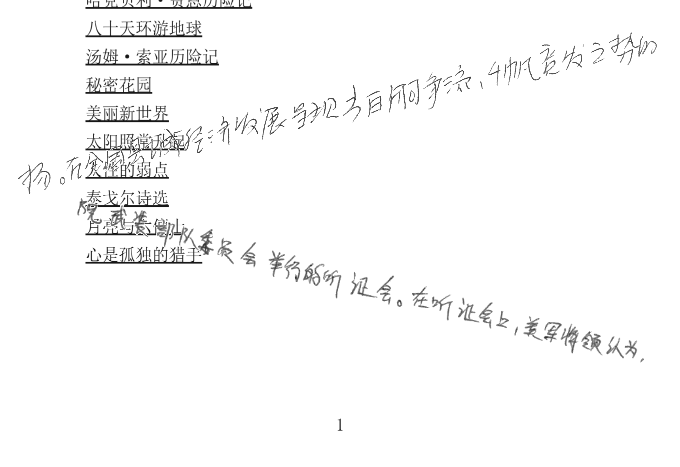 哈克贝利·费恩历险记
八十天环游地球
汤姆·索亚历险记
秘密花园
美丽新世界
太阳照常升起
人性的弱点
泰戈尔诗选
月亮与六便士
心是孤独的猎手
扬。在全国各地经济发展呈现出百舸争流、千帆竞发之势的
院武装部队委员会举行的听证会。在听证会上，美军将领认为，
1